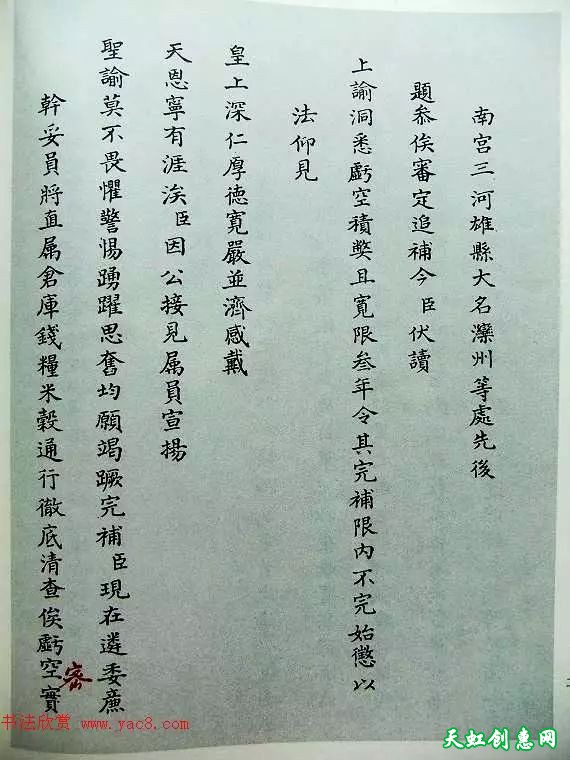 南宫三河雄縣大名灤州等處先後
題叅俟審定追補今臣伏讀
上諭洞悉虧空積獘且寛限叁年令其完補限內不完始懲以
法仰見
皇上深仁厚德寛嚴並濟感戴
天恩寧有涯涘臣因公接見属員宣揚
聖諭莫不畏懼警惕踴躍思奮均願竭蹶完補臣現在遴委廉
幹妥員將直属倉庫錢糧米穀通行徹底清查俟虧空實
密
书法欣赏 www.yac8.com
天虹创惠网